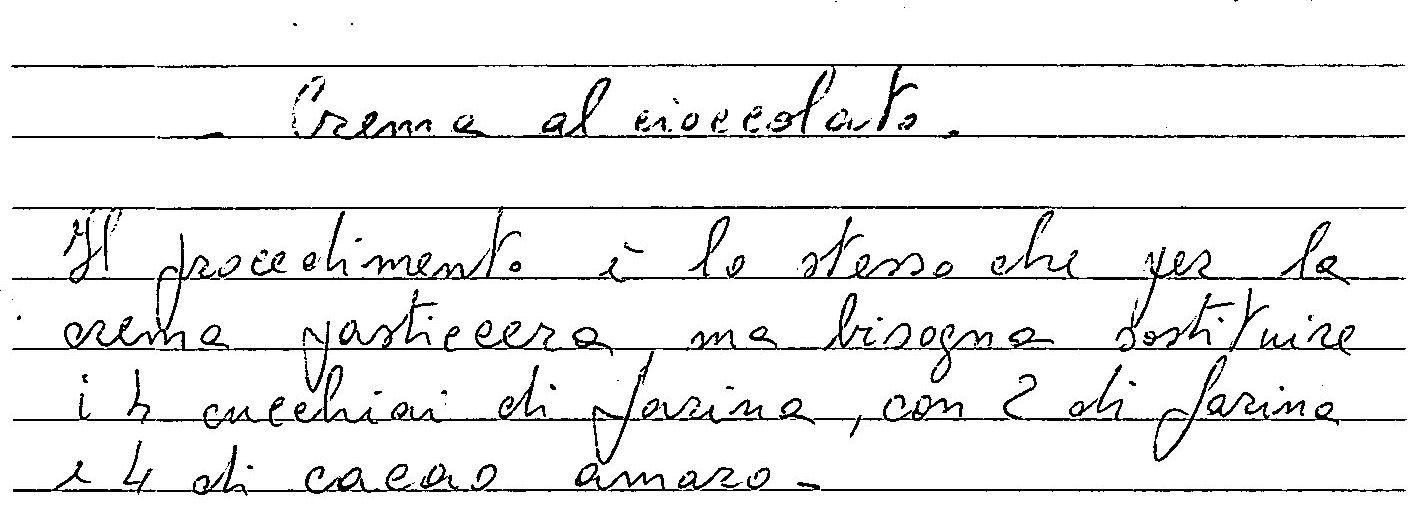 - Crema al cioccolato.
Il procedimento è lo stesso che per la
crema pasticcera, ma bisogna sostituire
i 4 cucchiai di farina, con 2 di farina
e 4 di cacao amaro -